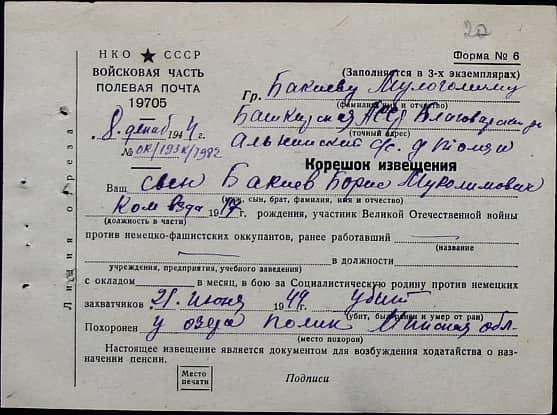 20
НКО ★ СССР
ВОЙСКОВАЯ ЧАСТЬ
ПОЛЕВАЯ ПОЧТА
19705
8. декаб 1944 г.
№ ОК/193К/7982
Линия отреза
Форма № 6
(Заполняется в 3-х экземплярах)
Гр. Бакиеву
(фамилия, имя и отчество)
Башкирская АССР Благоварский
(точный адрес)
Корешок извещения
Ваш сын Бакиев Борис
(муж, сын, брат, фамилия, имя и отчество)
Ком взвода 19 рождения, участник Великой Отечественной войны
(должность в части)
против немецко-фашистских оккупантов, ранее работавший
(название
в должности
учреждения, предприятия, учебного заведения)
с окладом в месяц, в бою за Социалистическую родину против немецких
захватчиков 21. июня 1944 убит
(убит, был ранен и умер от ран)
Похоронен у озера Минская обл
(место похорон)
Настоящее извещение является документом для возбуждения ходатайства о на-
значении пенсии.
Место
печати
Подписи